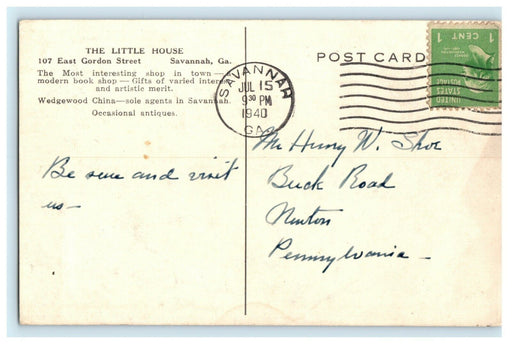 THE LITTLE HOUSE
107 East Gordon Street Savannah, Ga.
The Most interesting shop in town —
modern book shop — Gifts of varied interest
and artistic merit.
Wedgewood China—sole agents in Savannah.
Occasional antiques.
Be sure and visit
us—
POST CARD
SAVANNAH
JUL 15
9 30 PM
1940
GA.
1 CENT 1
UNITED
STATES
POSTAGE
Mr Henry W. Shoe
Buck Road
Newton
Pennsylvania—